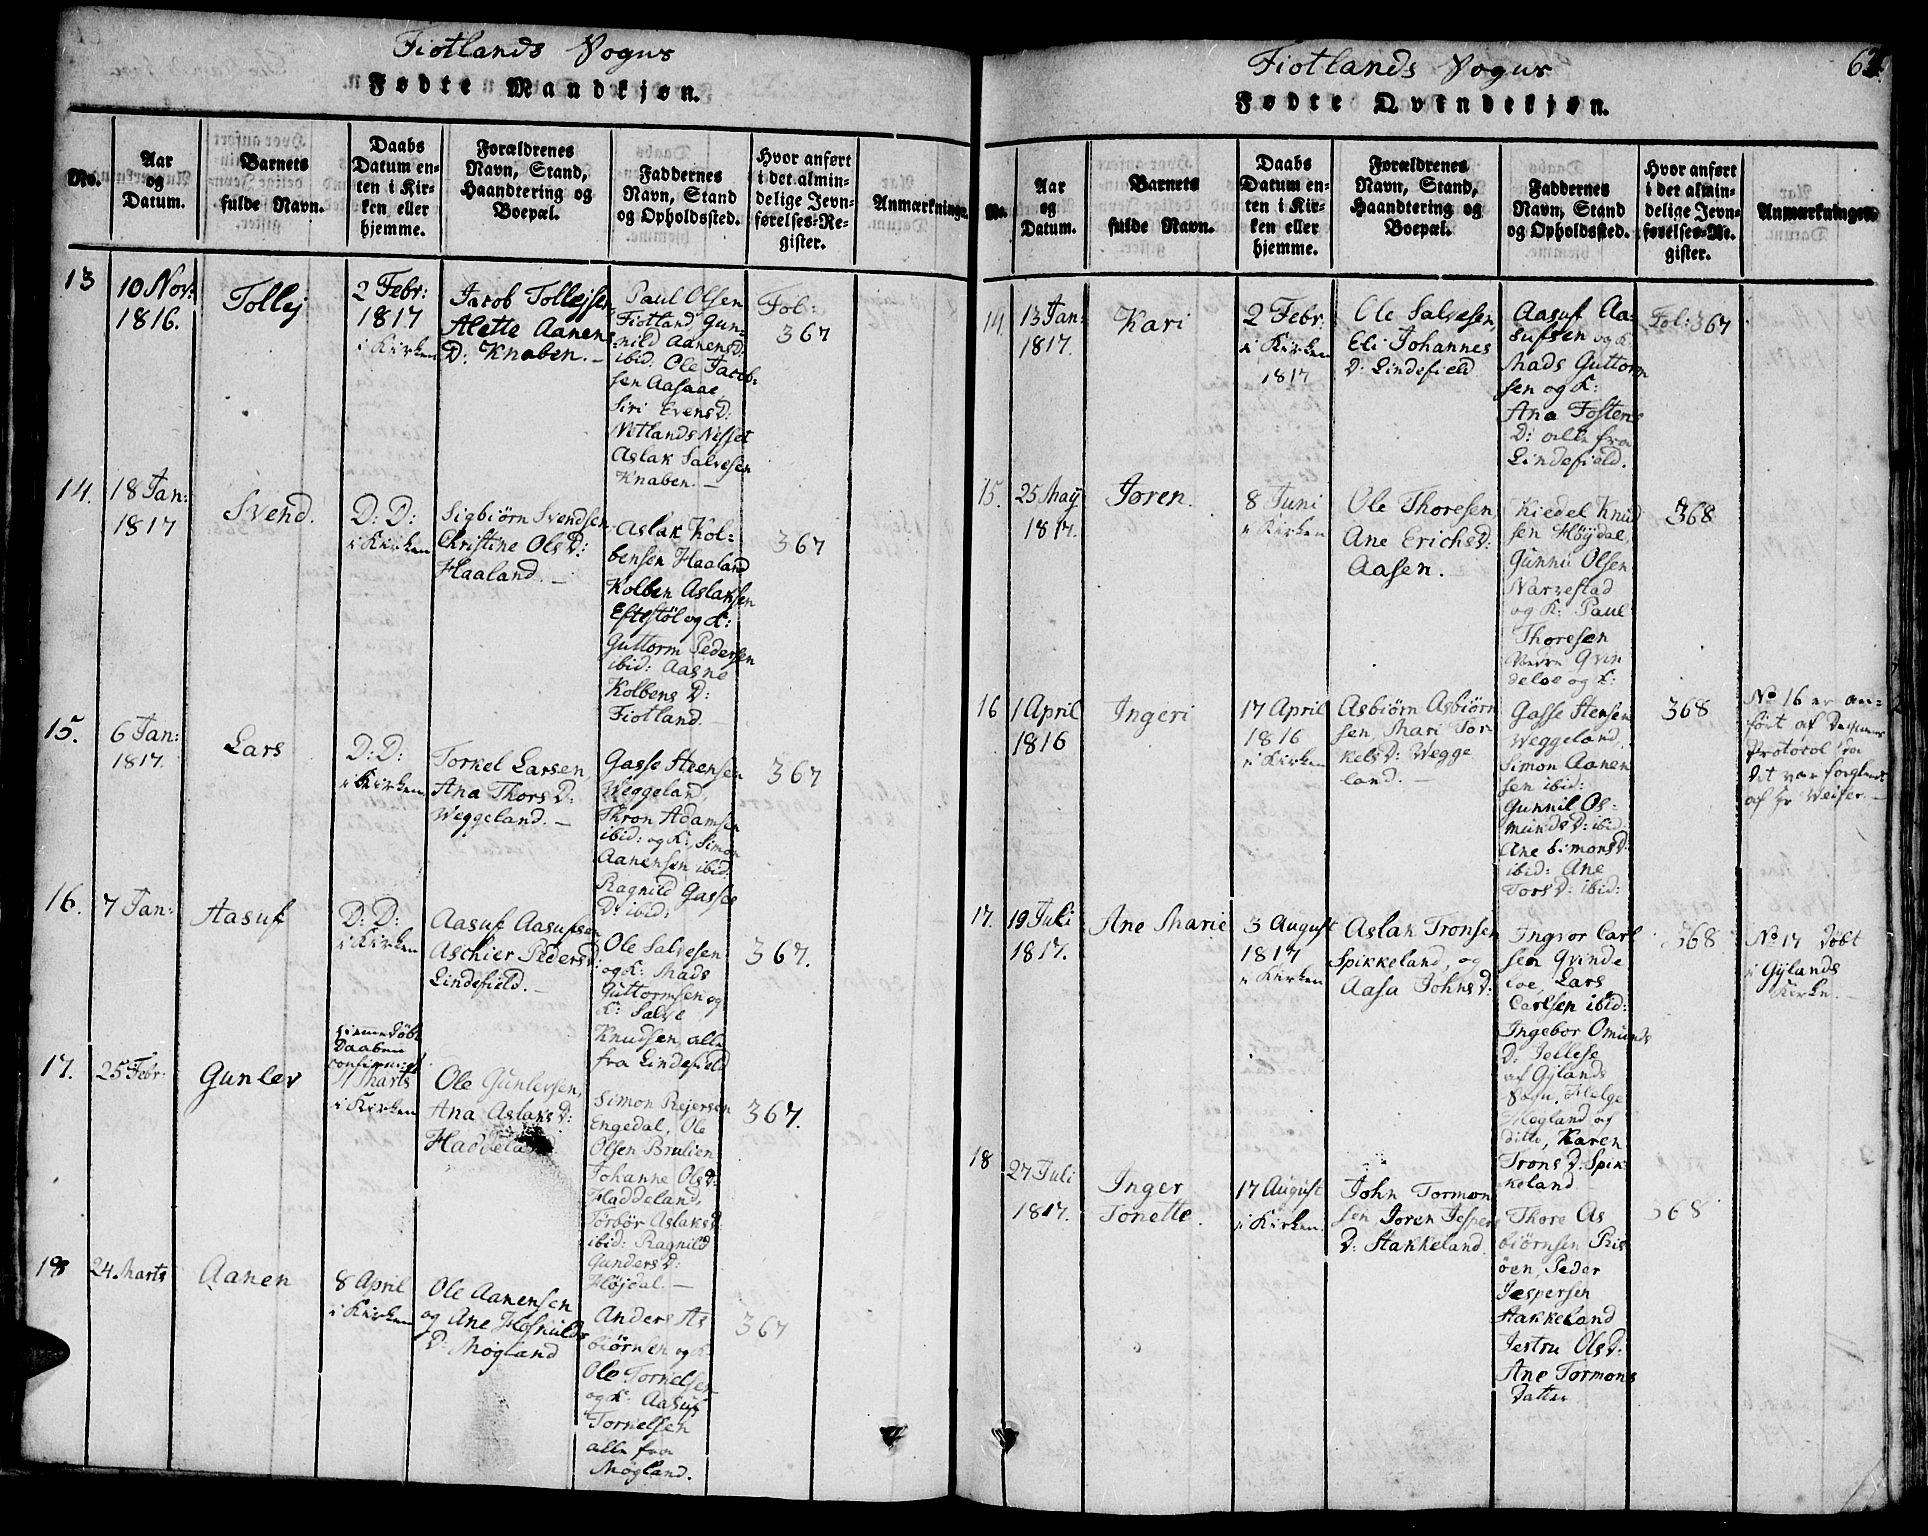 Fiotlands Sogns
Fødte Mandkjøn.
No.
Aar
og
Datum.
Barnets
fulde Navn.
Daabs
Datum en-
ten i Kir-
ken eller
hjemme.
Forældrenes
Navn, Stand,
Haandtering og
Boepæl.
Faddernes
Navn, Stand
og Opholdssted.
Hvor anført
i det almin-
delige Jevn-
førelses-Re-
gister.
Anmærkninge
13
10 Nov:
1816.
Tollej
2 Febr:
1817
i Kirken
Jacob Tollejsen,
Alette Aanens
D: Knaben. –
Paul Olsen
Fiotland Gun-
nild Aanens D:
ibid: Ole Jacob:
sen Aasaae,
Siri Evens D:
Netlands Nesset
Aslak Salvesen
Knaben. –
Fol:
367
14.
18 Jan:
1817
Svend.
D: D:
i Kirken
Sigbiørn Svendsen
Christine Ols D:
Haaland. –
Aslak Kol-
bensen Haaland
Kolben Aslaksen
Eftestöl og K:
Guttorm Pedersen
ibid: Aasne
Kolbens D:
Fiotland. –
367
15.
6 Jan:
1817.
Lars
D: D:
i Kirken
Torkel Larsen,
Ana Thors D:
Weggeland. –
Gasse Steensen
Weggeland,
Thron Adamsen
ibid: og K: Simon
Aanensen ibid:
Ragnild Gasses
D: ibid:
367
16.
7 Jan:
Aasuf
D: D:
i Kirken
Aasuf Aasufsen
Aschier Peders D:
Lindefield. –
Ole Salvesen
og K: Mads
Guttormsen og
K: Salve
Knudsen, alle
fra Lindefield
367.
17.
25 Febr:
Gunlev
hiemmedøbt
Daaben
confirmert
Marts
i Kirken
Ole Gunlevsen,
Ana Aslaks D:
Haddeland
Simon Rejersen
Engedal, Ole
Olsen Brulien
Johanne Ols D:
Haddeland,
Torbör Aslaks D:
ibid: Ragnild
Gunders D:
Højdal. –
367.
18
24. Marts
Aanen
8 April
i Kirken
Ole Aanensen
og Ane Hoskulds
D: Mögland
Anders As
biörnsen og K:
Ole Torkelsen
og K: Aasuf
Torkelsen
alle fra
Mögland.
367
Fiotlands Sogns
62.
Fødte Qvindekjøn.
No.
Aar
og
Datum.
Barnets
fulde Navn.
Daabs
Datum en-
ten i Kir-
ken eller
hjemme.
Forældrenes
Navn, Stand,
Haandtering og
Boepæl.
Faddernes
Navn, Stand
og Opholdssted.
Hvor anført
i det almin-
delige Jevn-
førelses-Re-
gister.
Anmærkninger
14.
13 Jan:
1817.
Kari
2 Febr:
i Kirken
1817
Ole Salvesen,
Eli Johannes
D: Lindefield
Aasuf Aa-
sufsen og K:
Mads Guttorm
sen og K:
Ana Tostens
D: alle fra
Lindefield.
Fol: 367
15.
25 May
1817.
Joren.
8 Juni
i Kirken
Ole Thoresen
Ane Erichs D:
Aasen.
Kiedel Knud
sen Höydal,
Gunnu Olsen
Narvestad
og K: Paul
Thoresen
Nedre Qvin
deloe og K:
368
16
1 April
1816
Ingeri
17 April
1816
i Kirken
Asbiörn Asbiörn
sen, Mari Tor
kels D: Wegge
land. –
Gasse Stensen
Weggeland,
Simon Aanen
sen ibid:
Gunnil Os-
munds D: ibid:
Ane Simons D:
ibid: Ane
Tors D: ibid:
368
No 16 er an-
fört af Degnens
Protocol da
Det var forglemt
af Hr Weiser. –
17.
19 Juli
1817.
Ane Marie
3 August
1817
i Kirken
Aslak Tronsen
Spikkeland, og
Aasa Johns D:
Ingvor Carl
sen Qvinde
loe, Lars
Carlsen ibid:
Ingebor Omunds
D: Jellese
af Gylands
Sogn, Helge
Hegland af
ditto, Karen
Trons D: Spik-
keland
368
No 17 döbt
i Gylands
Kirke. –
18
27 Juli
1817.
Inger
Tonette.
17 August
i Kirken.
John Tormon
sen Joren Jesper
D: Stakkeland.
Thore As
biörnsen Pris
öen, Peder
Jespersen
Stakkeland
Jestru Ols D:
Ane Tormons
Datter
368